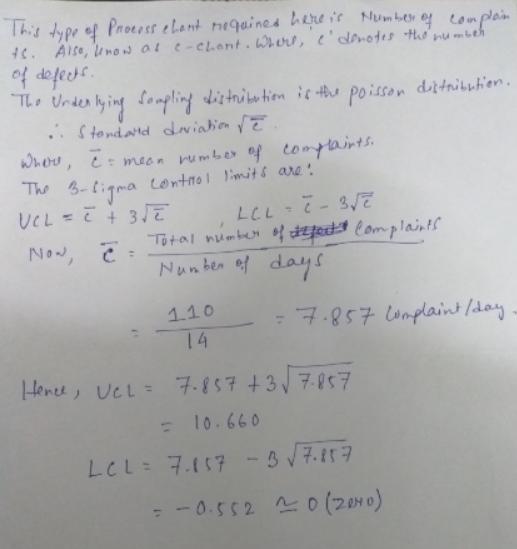 This type of Process chart required here is Number of complain
ts. Also, know as c-chart. Where, 'c' denotes the number
of defects.
The Underlying Sampling distribution is the poisson distribution.
∴ Standard deviation √c̄
Where, c̄ = mean number of complaints.
The 3-Sigma Control limits are:
UCL = c̄ + 3√c̄ , LCL = c̄ - 3√c̄
Now, c̄ = Total number of complaints
Number of days
= 110 = 7.857 Complaint/day.
14
Hence, UCL = 7.857 + 3√7.857
= 10.660
LCL = 7.857 - 3√7.857
= -0.552 ≃ 0 (zero)